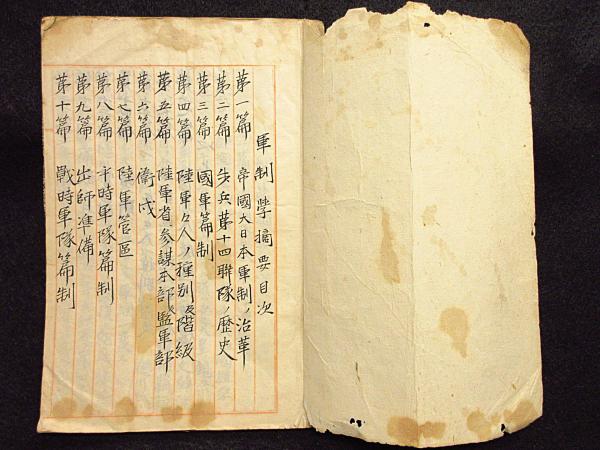 軍制學摘要目次
第一篇 帝國大日本軍制ノ沿革
第二篇 步兵第十四聯隊ノ歴史
第三篇 國軍篇制
第四篇 陸軍々人ノ種別及階級
第五篇 陸軍省參謀本部監軍部
第六篇 衛戍
第七篇 陸軍管區
第八篇 平時軍隊篇制
第九篇 出師準備
第十篇 戰時軍隊篇制